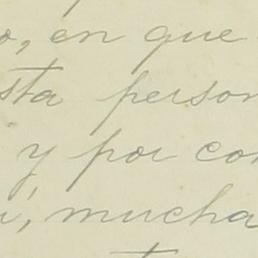 o, en que
sta person
y por con
i, mucha